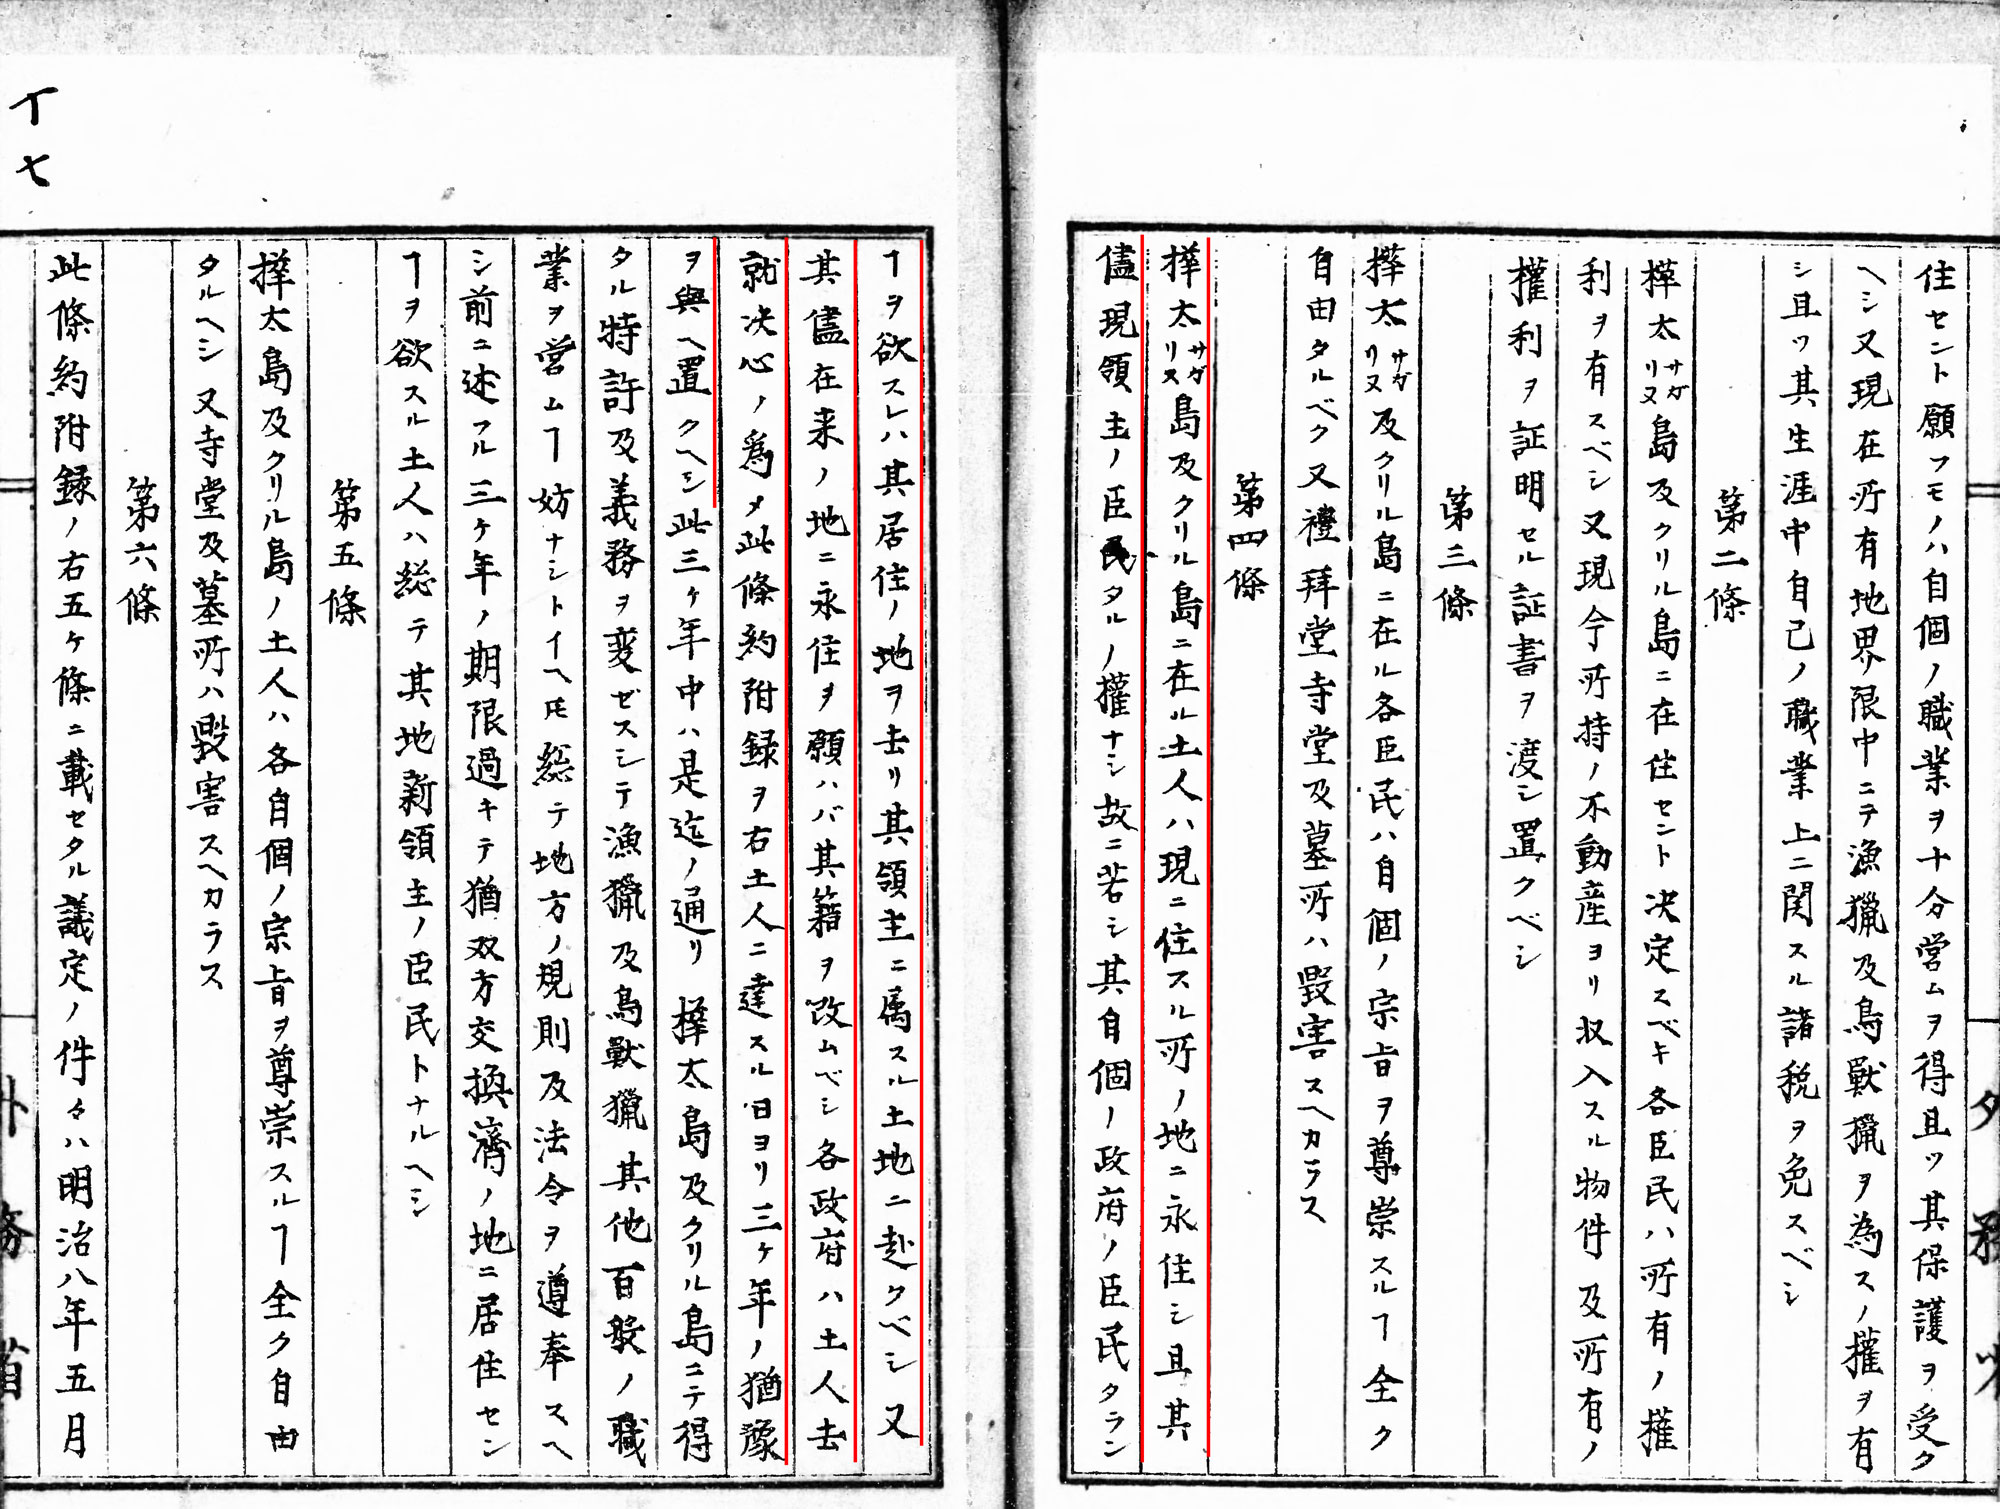 住セント願フモノハ自個ノ職業ヲ十分営ムヲ得且ツ其保護ヲ受ク
ヘシ又現在所有地界限中ニテ漁獵及鳥獸獵ヲ為スノ權ヲ有
シ且ツ其生涯中自己ノ職業上ニ関スル諸税ヲ免スベシ
第二條
樺太サガリヌ島及クリル島ニ在住セント決定スベキ各臣民ハ所有ノ權
利ヲ有スベシ又現今所持ノ不動産ヨリ収入スル物件及所有ノ
權利ヲ証明セル証書ヲ渡シ置クベシ
第三條
樺太サガリヌ及クリル島ニ在ル各臣民ハ自個ノ宗旨ヲ尊崇スルヿ全ク
自由タルベク又禮拜堂寺堂及墓所ハ毀害スヘカラス
第四條
樺太サガリヌ島及クリル島ニ在ル土人ハ現ニ住スル所ノ地ニ永住シ且其
儘現領主ノ臣民タルノ權ナシ故ニ若シ其自個ノ政府ノ臣民タラン
ヿヲ欲スレハ其居住ノ地ヲ去リ其領主ニ属スル土地ニ赴クベシ又
其儘在来ノ地ニ永住ヲ願ハバ其籍ヲ改ムベシ各政府ハ土人去
就決心ノ為メ此條約附録ヲ右土人ニ達スル日ヨリ三ヶ年ノ猶豫
ヲ與ヘ置クヘシ此三ヶ年中ハ是迄ノ通リ樺太島及クリル島ニテ得
タル特許及義務ヲ変ゼスシテ漁獵及鳥獸獵其他百般ノ職
業ヲ営ムヿ妨ナシトイヘ𪜈総テ地方ノ規則及法令ヲ遵奉スヘ
シ前ニ述フル三ヶ年ノ期限過キテ猶双方交換濟ノ地ニ居住セン
ヿヲ欲スル土人ハ総テ其地新領主ノ臣民トナルヘシ
第五條
樺太島及クリル島ノ土人ハ各自個ノ宗旨ヲ尊崇スルヿ全ク自由
タルヘシ又寺堂及墓所ハ毀害スヘカラス
第六條
此條約附録ノ右五ヶ條ニ載セタル議定ノ件々ハ明治八年五月
丁七
外務省